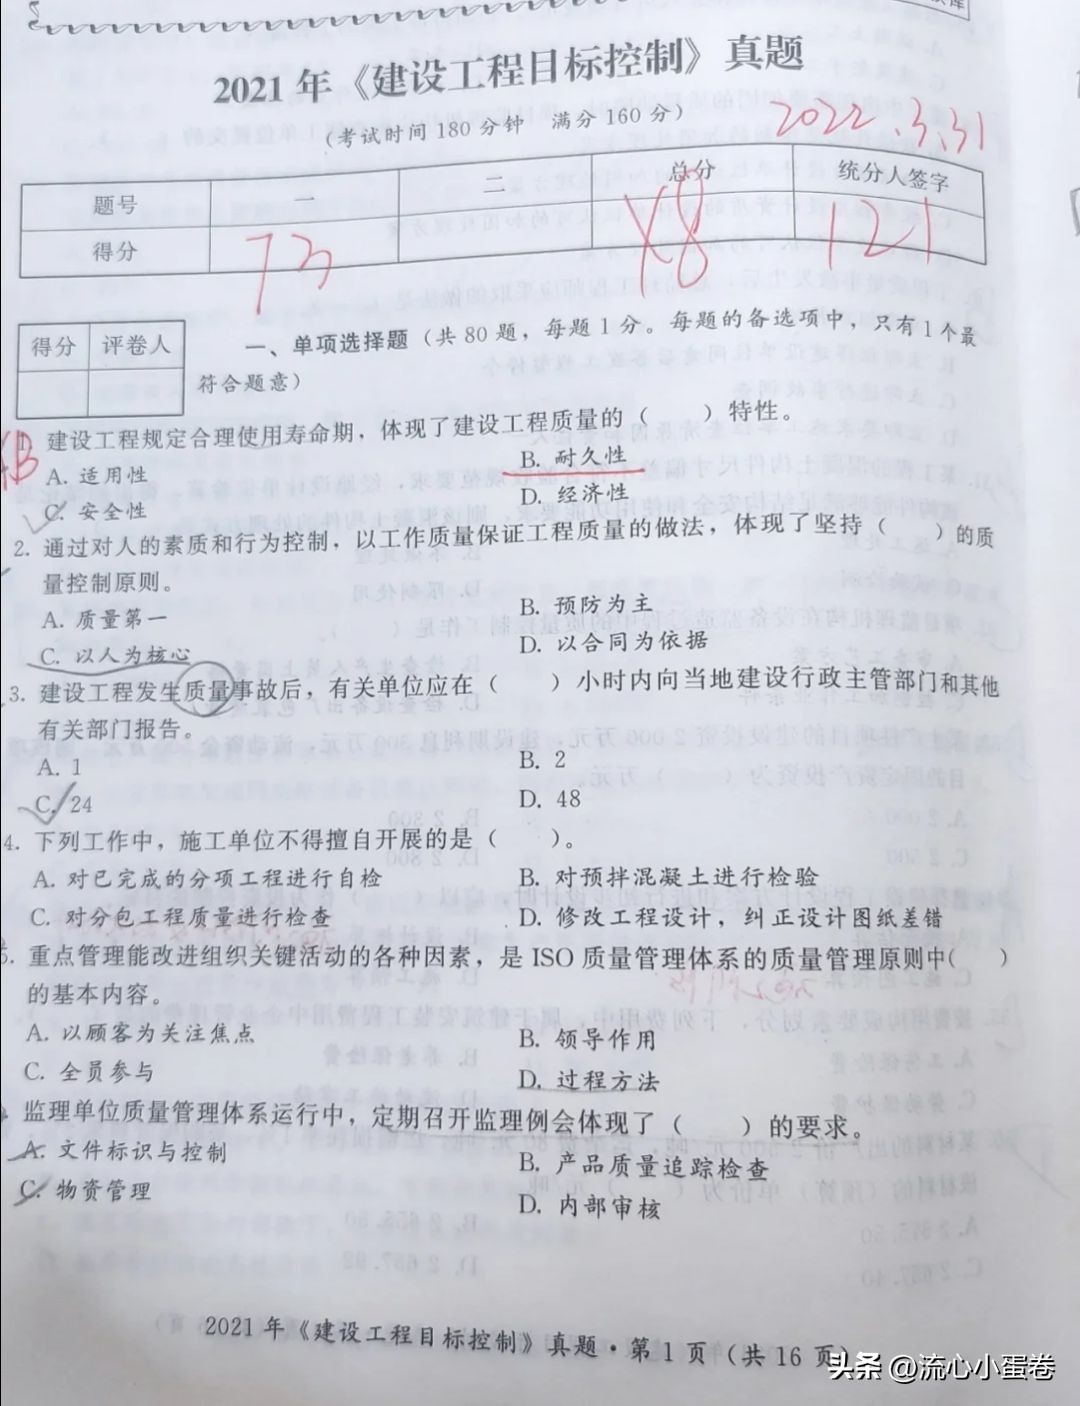 2021 年《建设工程目标控制》真题
(考试时间 180 分钟 满分 160 分)
2022.3.31
题号 一 二 总分 统分人签字
得分 73 48 121
得分 评卷人
一、单项选择题（共 80 题，每题 1 分。每题的备选项中，只有 1 个最
符合题意）
B
1. 建设工程规定合理使用寿命期，体现了建设工程质量的（ ）特性。
A. 适用性 B. 耐久性
C. 安全性 D. 经济性
2. 通过对人的素质和行为控制，以工作质量保证工程质量的做法，体现了坚持（ ）的质
量控制原则。
A. 质量第一 B. 预防为主
C. 以人为核心 D. 以合同为依据
3. 建设工程发生质量事故后，有关单位应在（ ）小时内向当地建设行政主管部门和其他
有关部门报告。
A. 1 B. 2
C. 24 D. 48
4. 下列工作中，施工单位不得擅自开展的是（ ）。
A. 对已完成的分项工程进行自检 B. 对预拌混凝土进行检验
C. 对分包工程质量进行检查 D. 修改工程设计，纠正设计图纸差错
5. 重点管理能改进组织关键活动的各种因素，是 ISO 质量管理体系的质量管理原则中( )
的基本内容。
A. 以顾客为关注焦点 B. 领导作用
C. 全员参与 D. 过程方法
监理单位质量管理体系运行中，定期召开监理例会体现了（ ）的要求。
A. 文件标识与控制 B. 产品质量追踪检查
C. 物资管理 D. 内部审核
2021 年《建设工程目标控制》真题·第 1 页（共 16 页）
头条 @流心小蛋卷